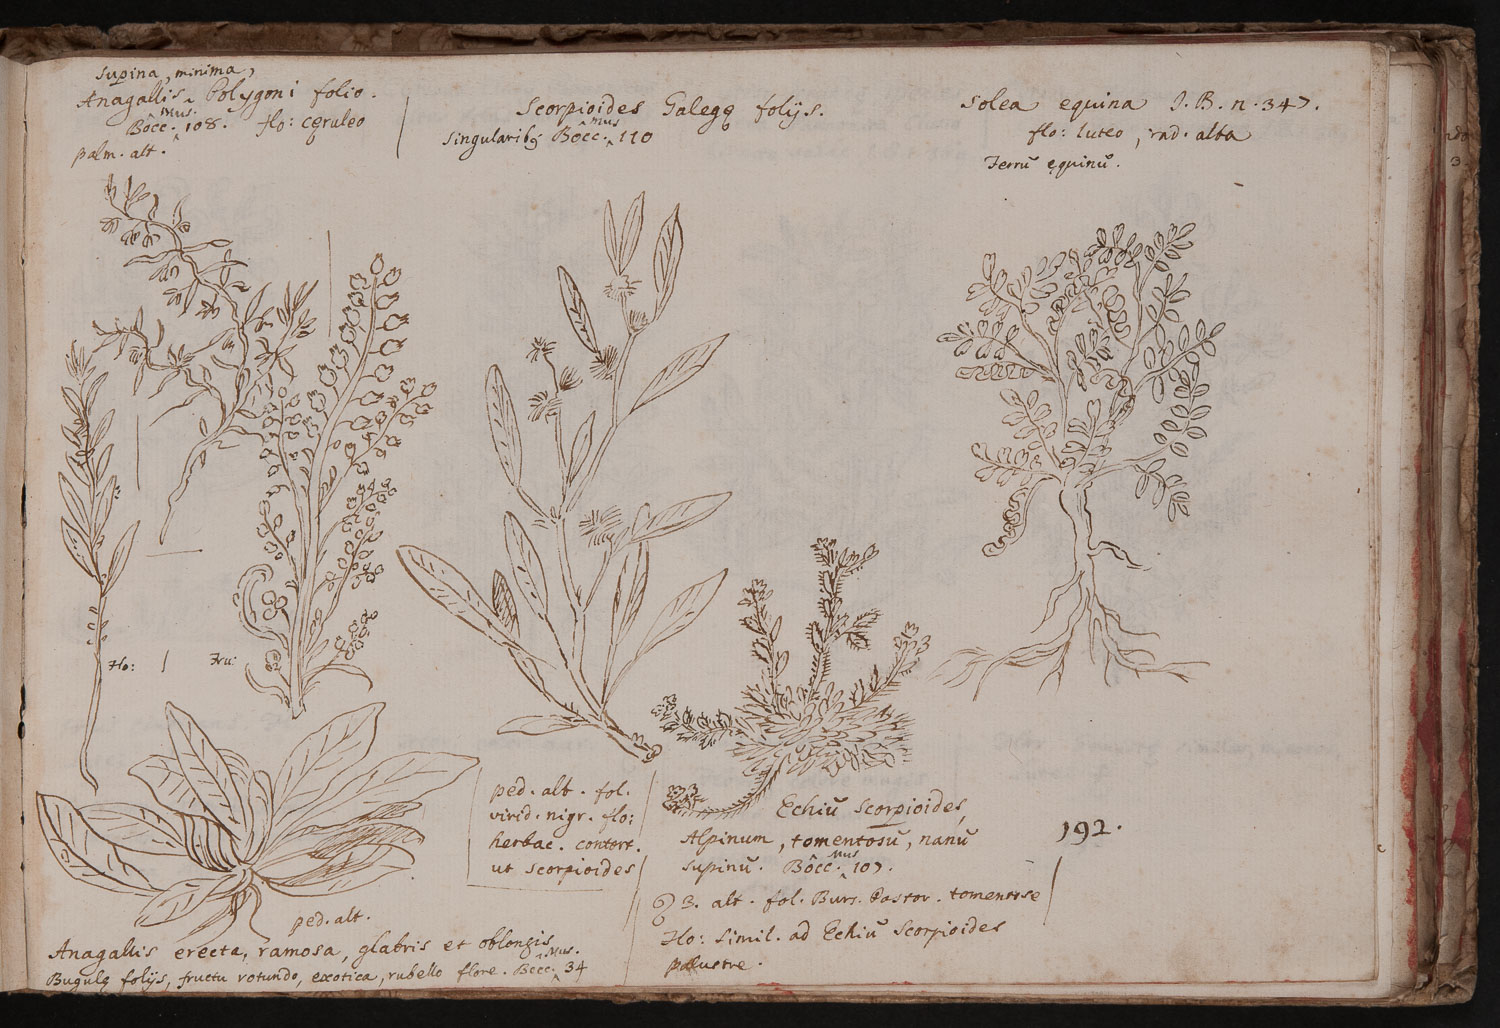 supina, minima,
Anagallis Polygoni folio.
Bocc. Mus. 108. flo: cęruleo
palm. alt.
Scorpioides Galegę folijs.
singularibq Bocc. Mus 110
Solea equina J. B. n. 347.
flo: luteo, rad. alba
Ferrū equinū.
Flo: Fru:
ped. alt. fol.
virid. nigr. flo:
herbac. contort.
ut scorpioides
Echiū Scorpioides,
Alpinum, tomentosū, nanū
supinū. Bocc. Mus 107.
3. alt. fol. Burs. Pastor. tomentose
Flo: simil. ad Echiū Scorpioides
palustre.
192.
ped. alt.
Anagallis erecta, ramosa, glabris et oblongis
Bugulę folijs, fructu rotundo, exotica, rubello flore. Bocc. Mus. 34